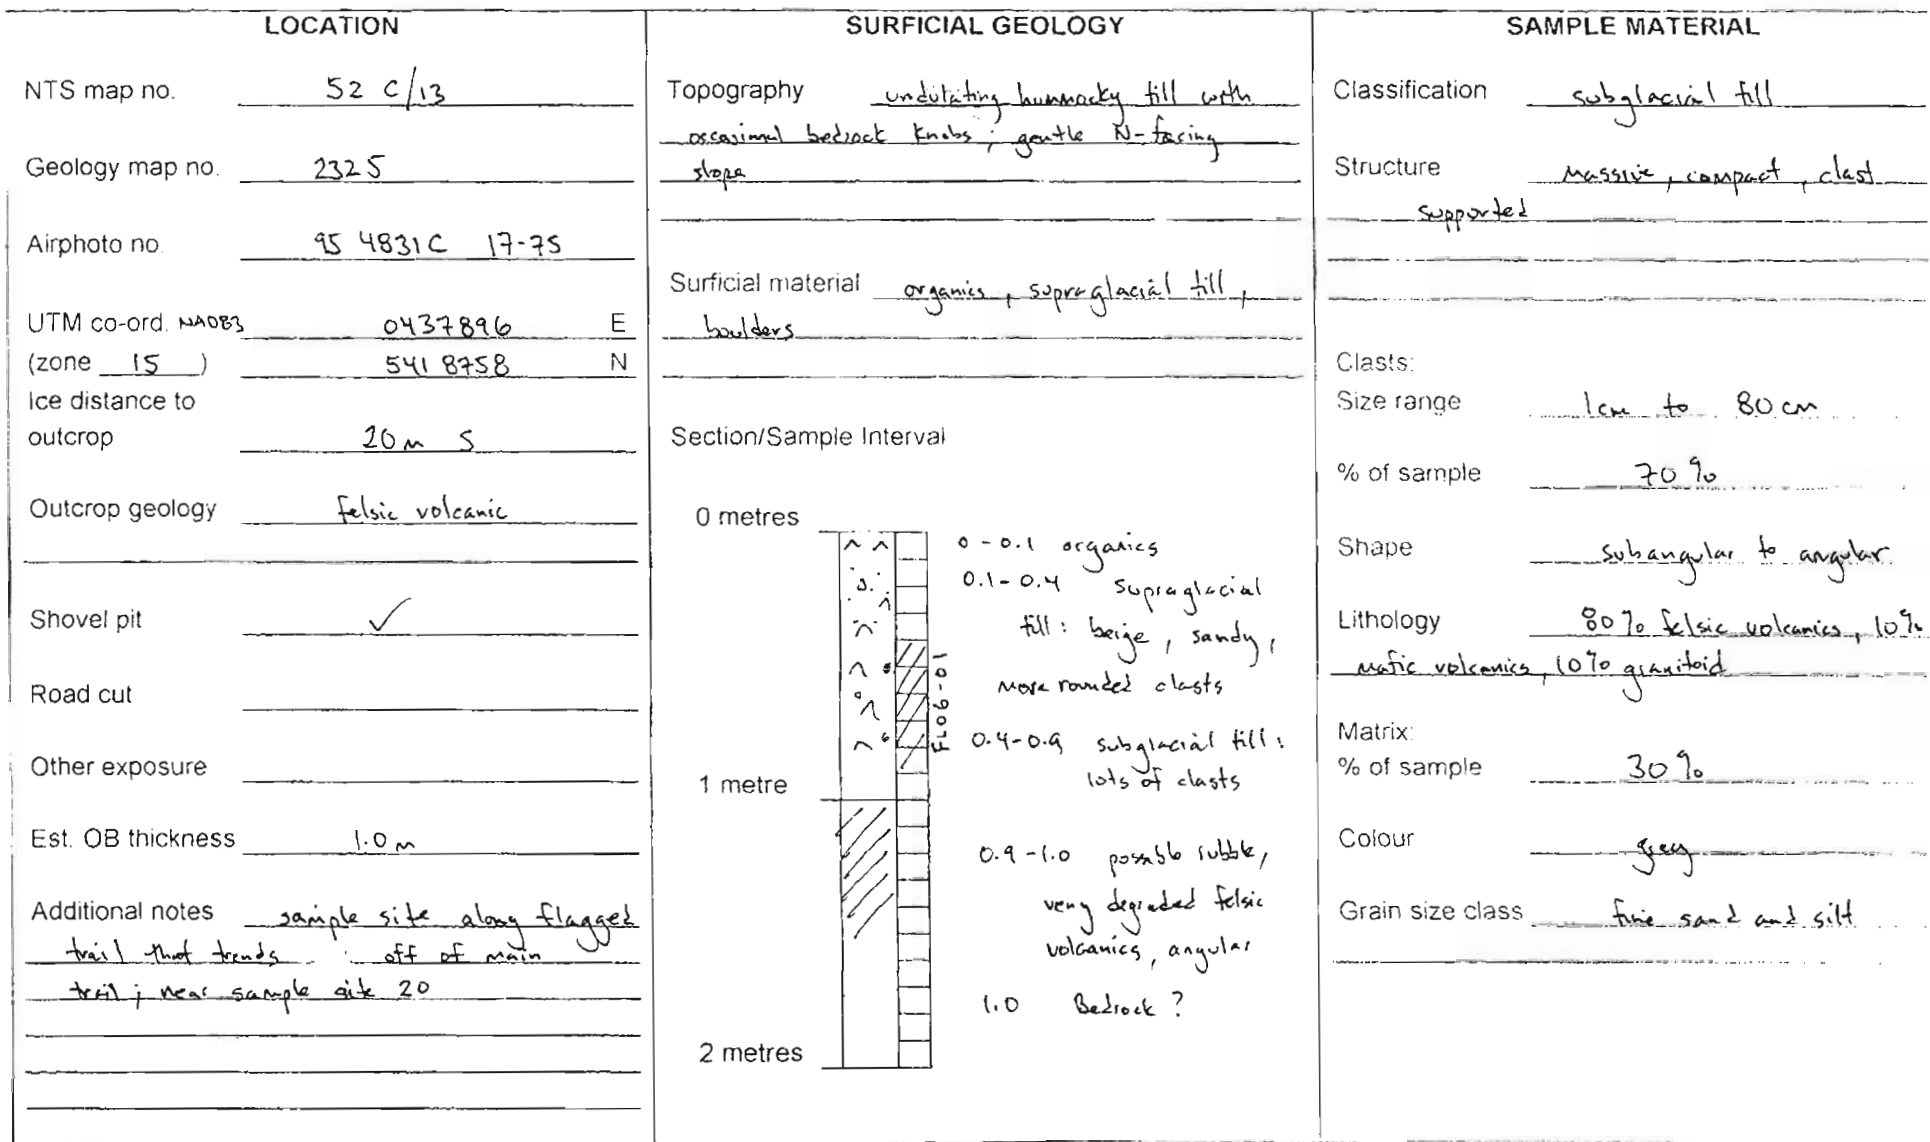 LOCATION
NTS map no. 52 C/13
Geology map no. 2325
Airphoto no. 95 4831C 17-75
UTM co-ord. NAD83 0437896 E
(zone 15 ) 5418758 N
Ice distance to
outcrop 20 m S
Outcrop geology felsic volcanic
Shovel pit ✓
Road cut
Other exposure
Est. OB thickness 1.0 m
Additional notes sample site along flagged
trail that trends off of main
trail ; near sample site 20
SURFICIAL GEOLOGY
Topography undulating hummocky till with
occasional bedrock knobs ; gentle N-facing
slope
Surficial material organics, supraglacial till,
boulders
Section/Sample Interval
0 metres
0 - 0.1 organics
0.1 - 0.4 supraglacial
till : beige, sandy,
more rounded clasts
FL06-01
0.4-0.9 subglacial till :
lots of clasts
1 metre
0.9 -1.0 possible rubble,
very degraded felsic
volcanics, angular
1.0 Bedrock ?
2 metres
SAMPLE MATERIAL
Classification subglacial till
Structure massive, compact, clast
supported
Clasts:
Size range 1cm to 80 cm
% of sample 70%
Shape subangular to angular
Lithology 80% felsic volcanics, 10%
mafic volcanics, 10% granitoid
Matrix:
% of sample 30%
Colour grey
Grain size class fine sand and silt